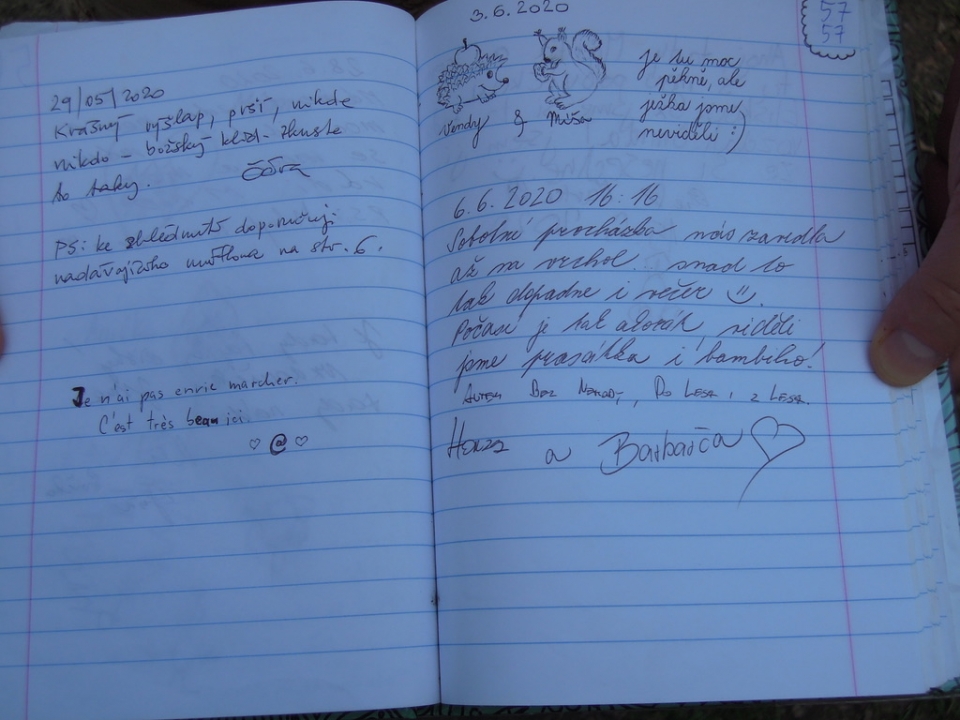 29/05/2020
Krásný výšlap, prší, nikde
nikdo – božský klid – zkuste
to taky.
PS: ke shlédnutí doporučuji
nadávajícího muflona na str. 6.
Je n'ai pas envie marcher.
C'est très beau ici.
♡ @ ♡
3.6.2020
57
57
Je tu moc
pěkně, ale
ježka jsme
neviděli :)
Vendy & Míša
6.6.2020 16:16
Sobotní procházka nás zavedla
až na vrchol... snad to
tak dopadne i večer
Počasí je tak akorát, viděli
jsme prasátka i bambiho!
Autem Bez Nehody, Do Lesa, z Lesa.
Honza a Barbarča ♡